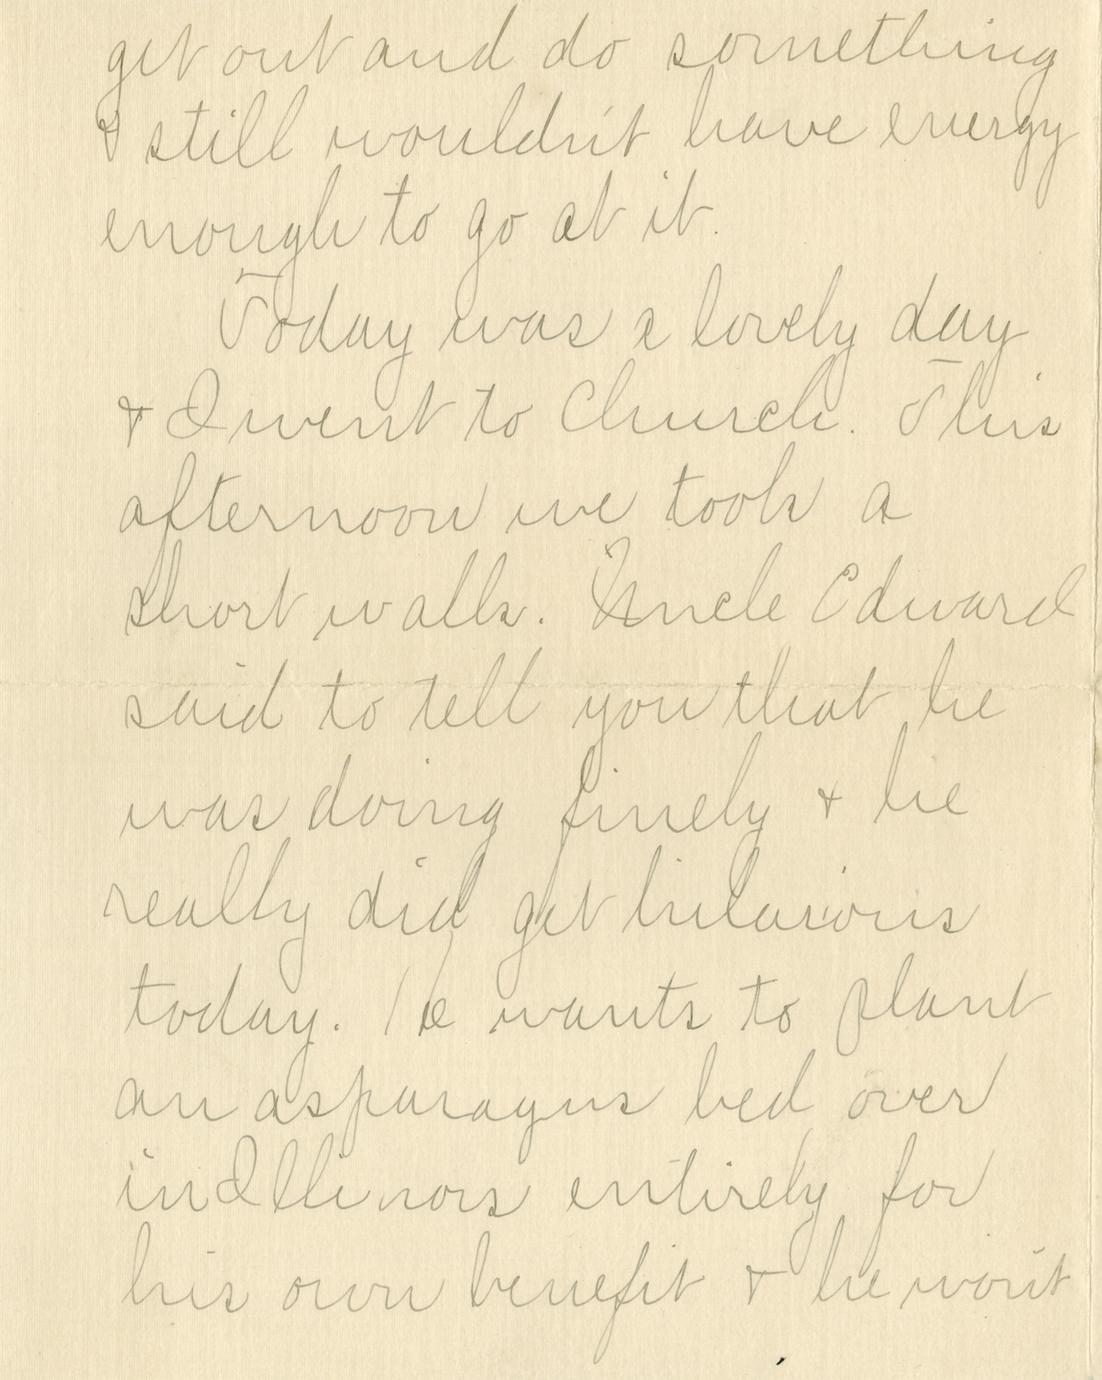 get out and do something
I still wouldn't have energy
enough to go at it.
Today was a lovely day
& I went to Church. This
afternoon we took a
short walk. Uncle Edward
said to tell you that he
was doing finely & he
really did get hilarious
today. He wants to plant
an asparagus bed over
in Illinois entirely for
his own benefit & he won't